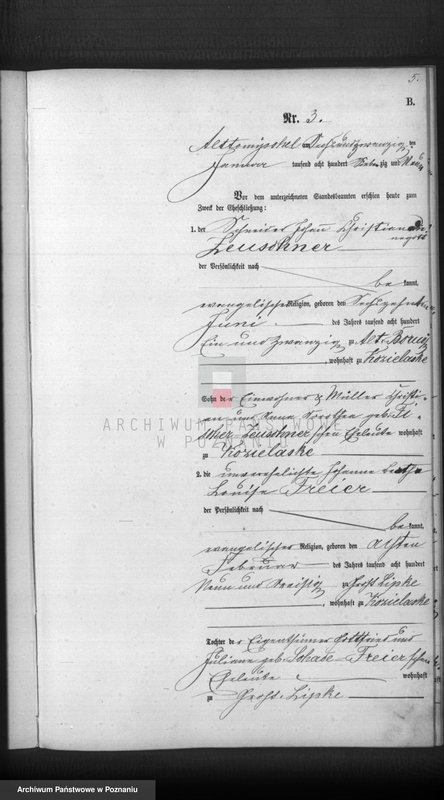 5.
B.
Nr. 3.
Alttomyschel am Sechsundzwanzig ten
Januar tausend acht hundert Sieben zig und Neun
Vor dem unterzeichneten Standesbeamten erschien heute zum
Zweck der Eheschließung:
1. der Schneider Johan Christian
Leuschner
der Persönlichkeit nach
be kannt,
evangelischer Religion, geboren den Sechszehnten
Juni des Jahres tausend acht hundert
Ein und Zwanzig zu Alt
, wohnhaft zu Kozielaske
Sohn der Einwohner & Müller Christi-
an und Anna Dorothea geb.
Leuschner schen Eheleute wohnhaft
zu Kozielaske
2. die unverehelichte Johanne
Louise Freier
der Persönlichkeit nach
be kannt,
evangelischer Religion, geboren den Achten
Februar des Jahres tausend acht hundert
Neun und Dreißig zu Groß Lipke
, wohnhaft zu Kozielaske
Tochter der Eigenthümer Gottfried und
Juliane geb. Schade Freier schen
Eheleute wohnhaft
zu Groß Lipke
ARCHIWUM PAŃSTWOWE
W POZNANIU
Archiwum Państwowe w Poznaniu